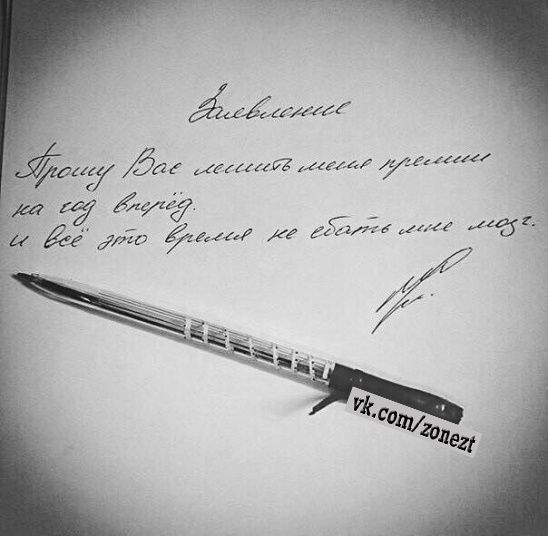 Заявление
Прошу Вас лишить меня премии
на год вперёд.
и всё это время не ебать мне мозг.
vk.com/zonezt